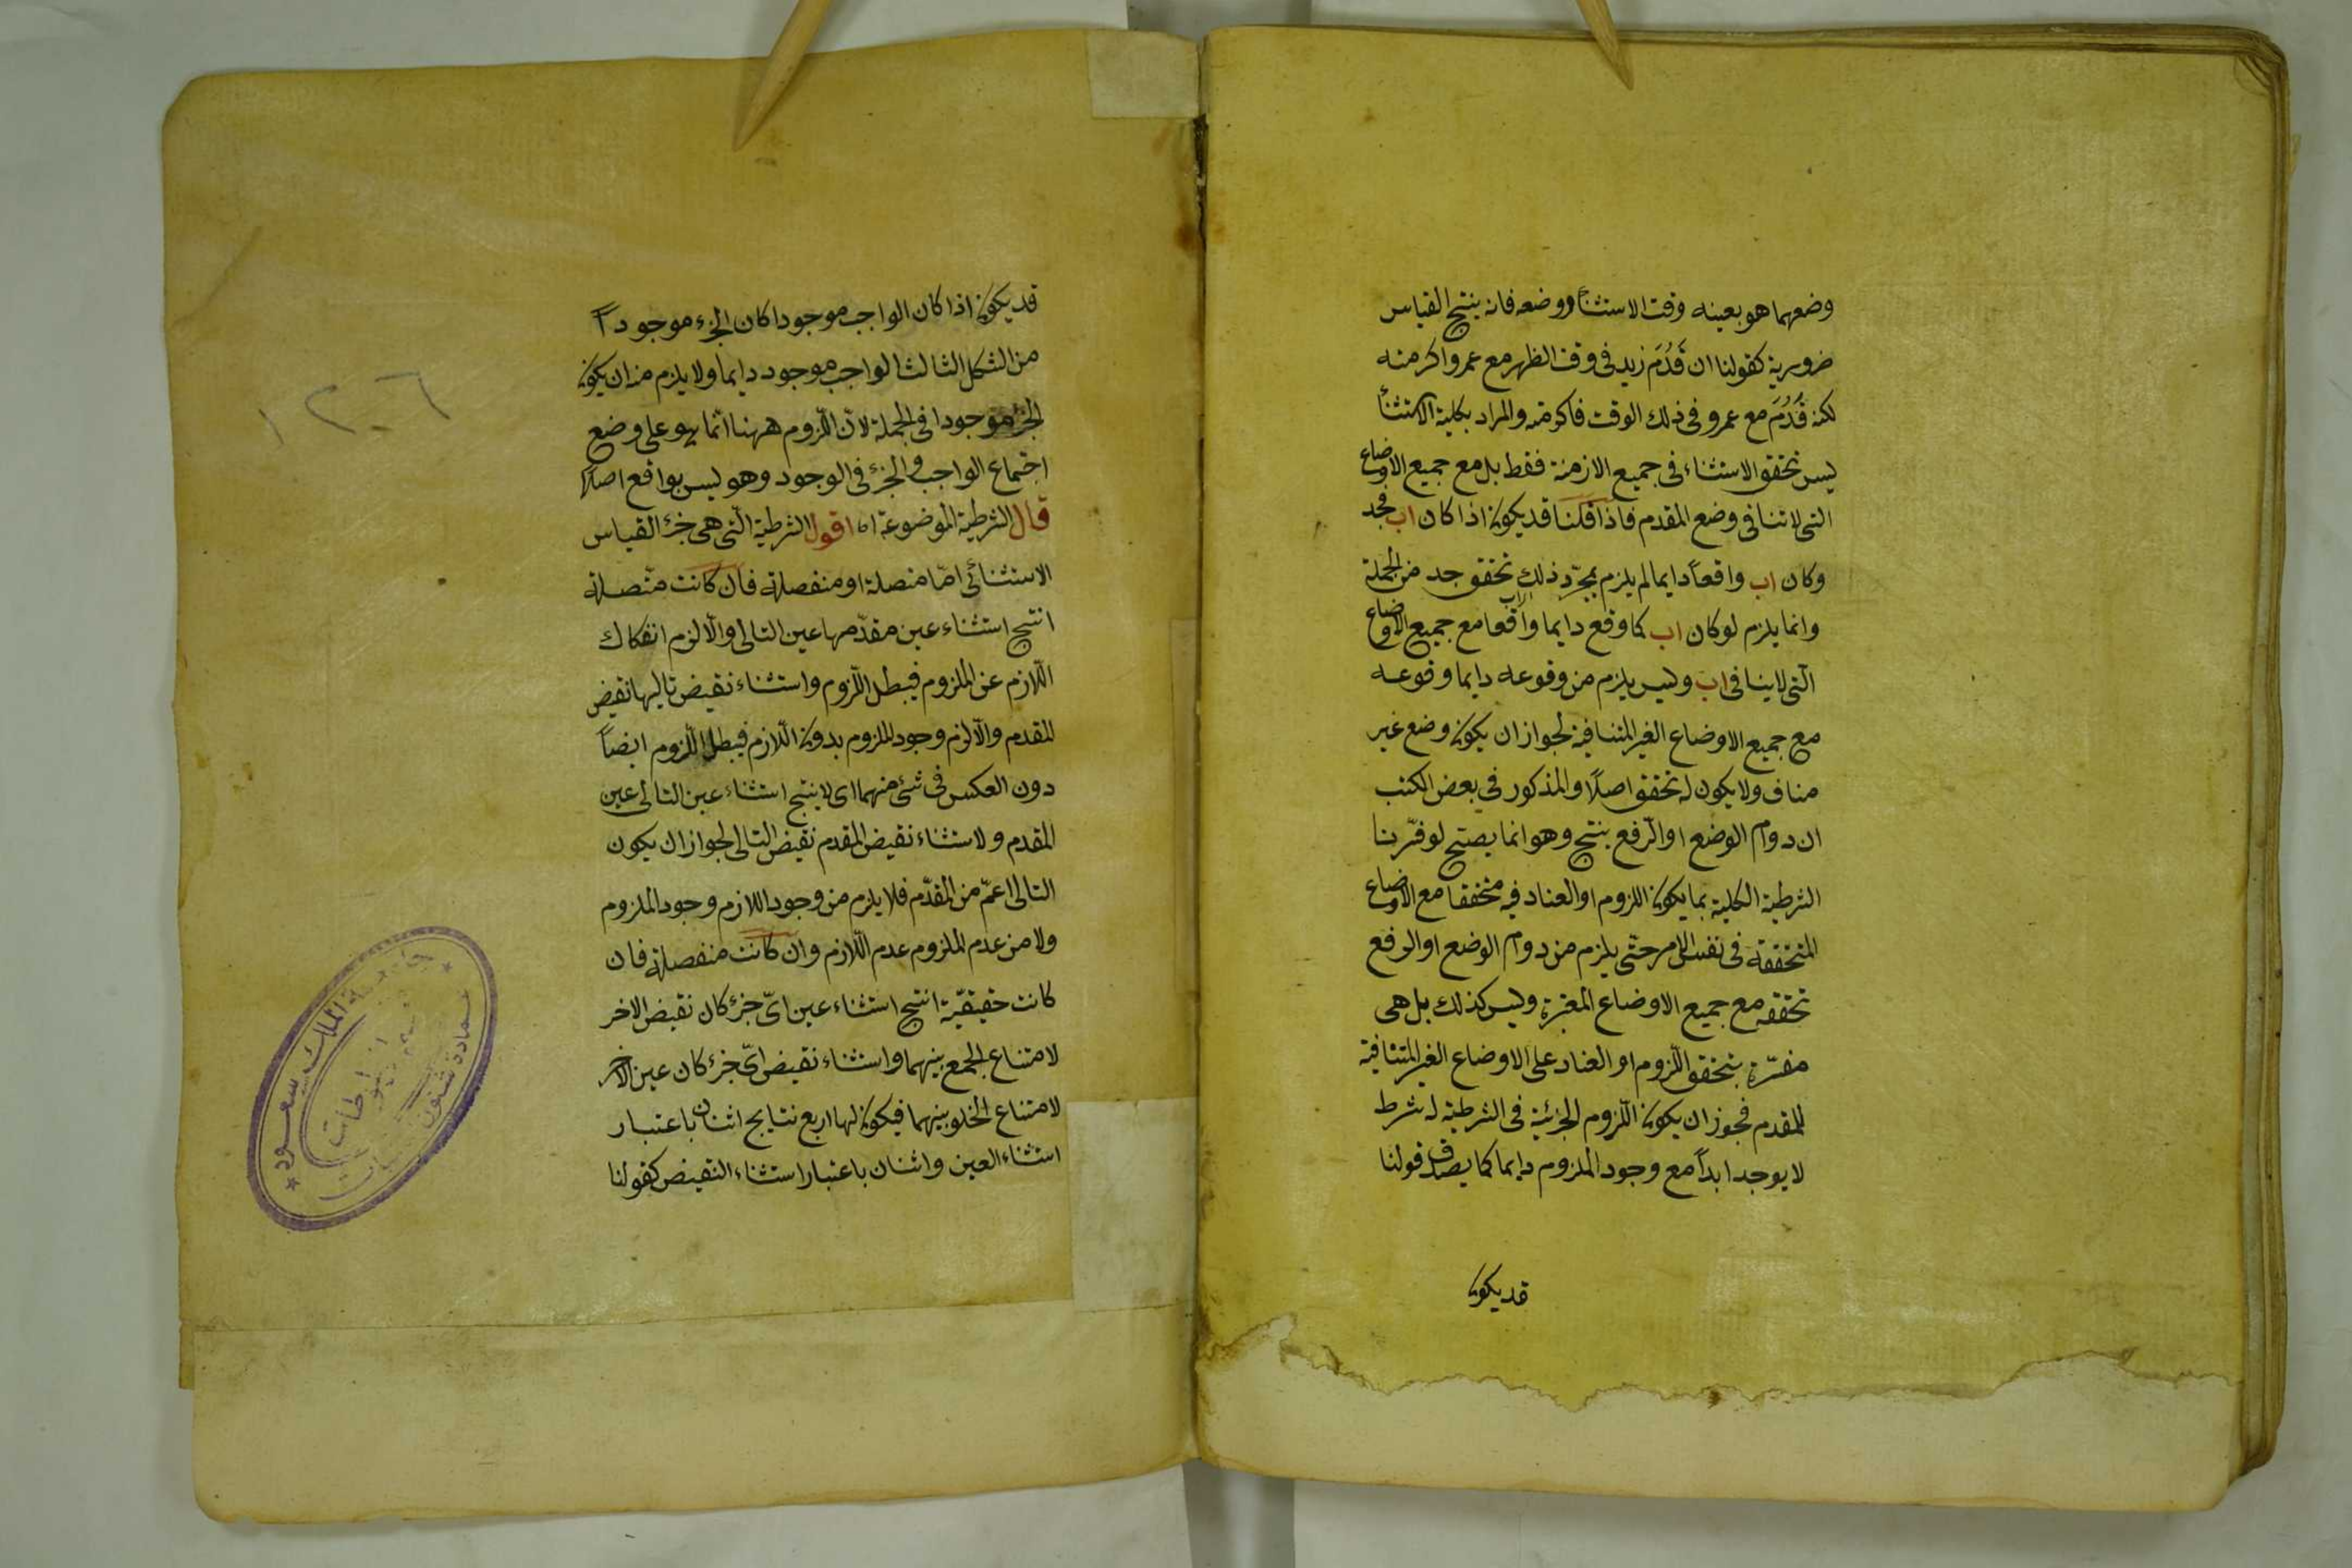 وضعهما هو بعينه وقت الاستثناء ووضعه فانه ينتج القياس
ضرورية كقولنا ان قَدُمَ زيد فى وقت الظهر مع عمرو اكرمته
لكنه قَدُمَ مع عمرو فى ذلك الوقت فاكرمته والمراد بكلية الاستثناء
ليس تحقق الاستثناء فى جميع الازمنة فقط بل مع جميع الاوضاع
التى لا تنافى وضع المقدم فاذا قلنا قد يكون اذا كان اب فجد
وكان اب واقعاً دايما لم يلزم بمجرّد ذلك تحقق جد من الجملة
وانما يلزم لو كان اب كما وقع دايما واقعا مع جميع الاوضاع
الّتى لاينافى اب وليس يلزم من وقوعه دايما وقوعه
مع جميع الاوضاع الغير المتنافية لجواز ان يكون وضع غير
مناف ولا يكون له تحقق اصلاً والمذكور فى بعض الكتب
ان دوام الوضع او الرّفع ينتج وهو انما يصتح لو فسّرنا
الشرطية الكلية بما يكون اللزوم او العناد فيه متحققا مع الاوضاع
المتحققة فى نفس الامر حتّى يلزم من دوام الوضع او الرفع
تحققه مع جميع الاوضاع المعتبرة وليس كذلك بل هى
مفسّرة بتحقق اللّزوم او العناد على الاوضاع الغير المتنافية
للمقدم فيجوز ان يكون اللّزوم الجزئية فى الشرطية له شرط
لا يوجد ابداً مع وجود الملزوم دايما كما يصدق قولنا
قد يكون
قد يكون اذا كان الواجب موجودا كان الجزء موجوداً
من الشكل الثالث الواجب موجود دايما ولا يلزم منه ان يكون
الجزء موجودا فى الجملة لانّ اللّزوم ههنا انّما هو على وضع
اجتماع الواجب والجزء فى الوجود وهو ليس بواقع اصلاً
قال الشرطية الموضوعة اه اقول الشرطية الّتى هى جزء القياس
الاستثنائى امّا متصلة او منفصلة فان كانت متّصلة
انتج استثناء عين مقدّمها عين التالى والّا لزم انفكاك
اللّازم عن الملزوم فيبطل اللّزوم واستثناء نقيض تاليها نقيض
المقدم والّا لزم وجود الملزوم بدون اللّازم فيبطل اللّزوم ايضاً
دون العكس فى شئ منهما اى لا ينتج استثناء عين التالى عين
المقدم ولا استثناء نقيض المقدم نقيض التالى لجواز ان يكون
التالى اعمّ من المقدّم فلا يلزم من وجود اللازم وجود الملزوم
ولا من عدم الملزوم عدم اللّازم وان كانت منفصلة فان
كانت حقيقيّة انتج استثناء عين اىّ جزء كان نقيض الاخر
لامتناع الجمع بينهما واستثناء نقيض اىّ جزء كان عين الاخر
لامتناع الخلو بينهما فيكون لها اربع نتايج اثنان باعتبار
استثناء العين واثنان باعتبار استثناء النقيض كقولنا
١٢٠٦
جامعة الملك سعود
عمادة شئون المكتبات